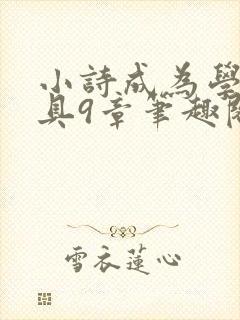 小詩成為學
具9章筆趣閱
雪衣蓮心